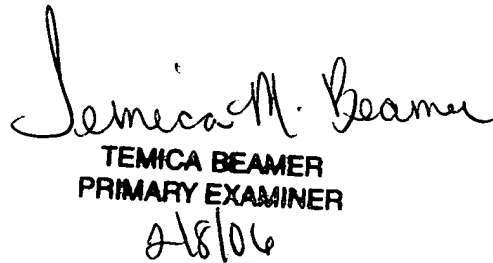 Temica M. Beamer
TEMICA BEAMER
PRIMARY EXAMINER
2/8/06